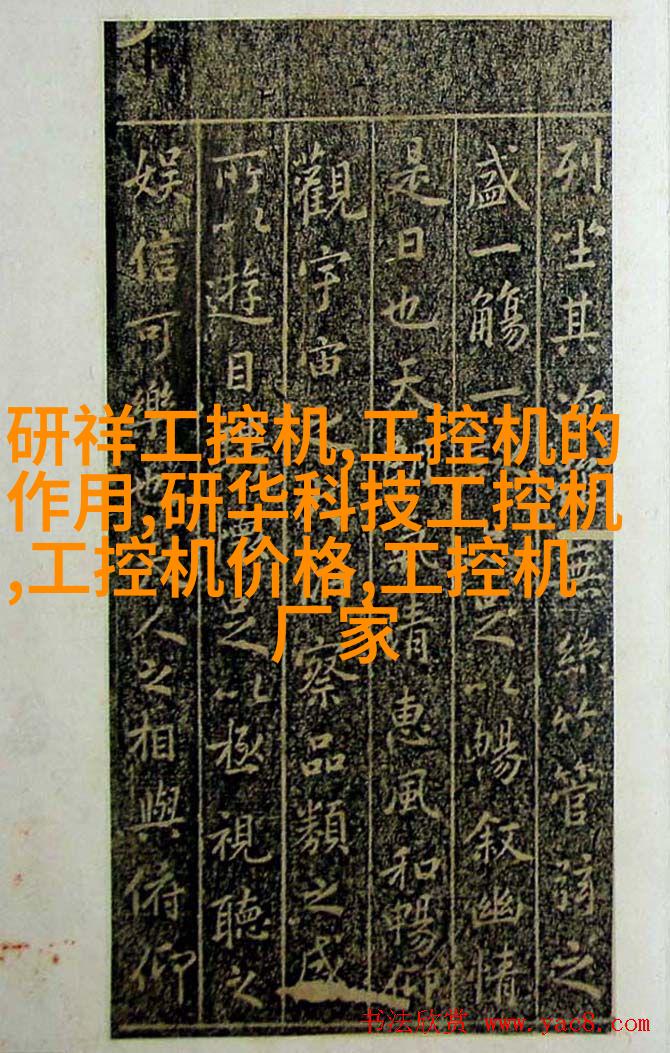 研祥工控机,工控机的
作用,研华科技工控机
,工控机价格,工控机
厂家
列坐其次無絲竹管弦之
盛一觴一足以暢叙幽情
是日也天清惠風和暢仰
觀宇宙之察品類之盛
所以遊目足以極視聽之
娱信可樂也人之相與俯仰
书法欣赏 www.yac8.com